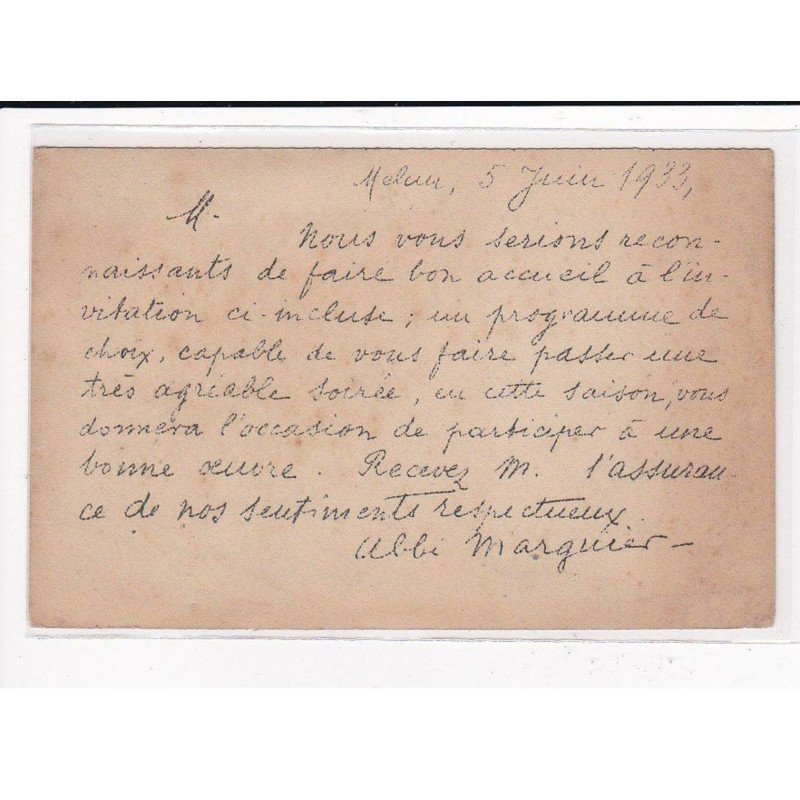 Melun, 5 Juin 1933,
M.
Nous vous serions recon-
naissants de faire bon accueil à l'in-
vitation ci-incluse ; un programme de
choix, capable de vous faire passer une
très agréable soirée, en cette saison, vous
donnera l'occasion de participer à une
bonne œuvre. Recevez M. l'assuran-
ce de nos sentiments respectueux.
Abbé Marguier